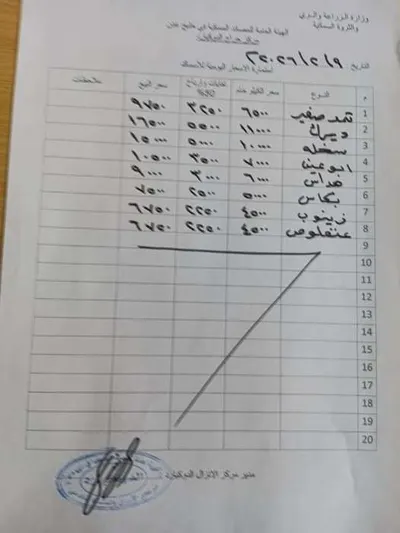 وزارة الزراعة والري
والثروة السمكية
الهيئة العامة للمصائد السمكية في خليج عدن
مركز حراج الدوكيارد
التاريخ ٢٠٢٦/٢/٩
استمارة الاسعار اليومية للأسماك
م النوع سعر الكيلو خام نفايات وارباح 50% سعر البيع ملاحظات
1 ثمد صغير ٦٥٠٠ ٣٢٥٠ ٩٧٥٠
2 ديرك ١١٠٠٠ ٥٥٠٠ ١٦٥٠٠
3 سخله ١٠٠٠٠ ٥٠٠٠ ١٥٠٠٠
4 ابو عين ٧٠٠٠ ٣٥٠٠ ١٠٥٠٠
5 ٦٠٠٠ ٣٠٠٠ ٩٠٠٠
6 ٥٠٠٠ ٢٥٠٠ ٧٥٠٠
7 زينوب ٤٥٠٠ ٢٢٥٠ ٦٧٥٠
8 عنفلوص ٤٥٠٠ ٢٢٥٠ ٦٧٥٠
9
10
11
12
13
14
15
16
17
18
19
20
مدير مركز الانزال الدوكيارد